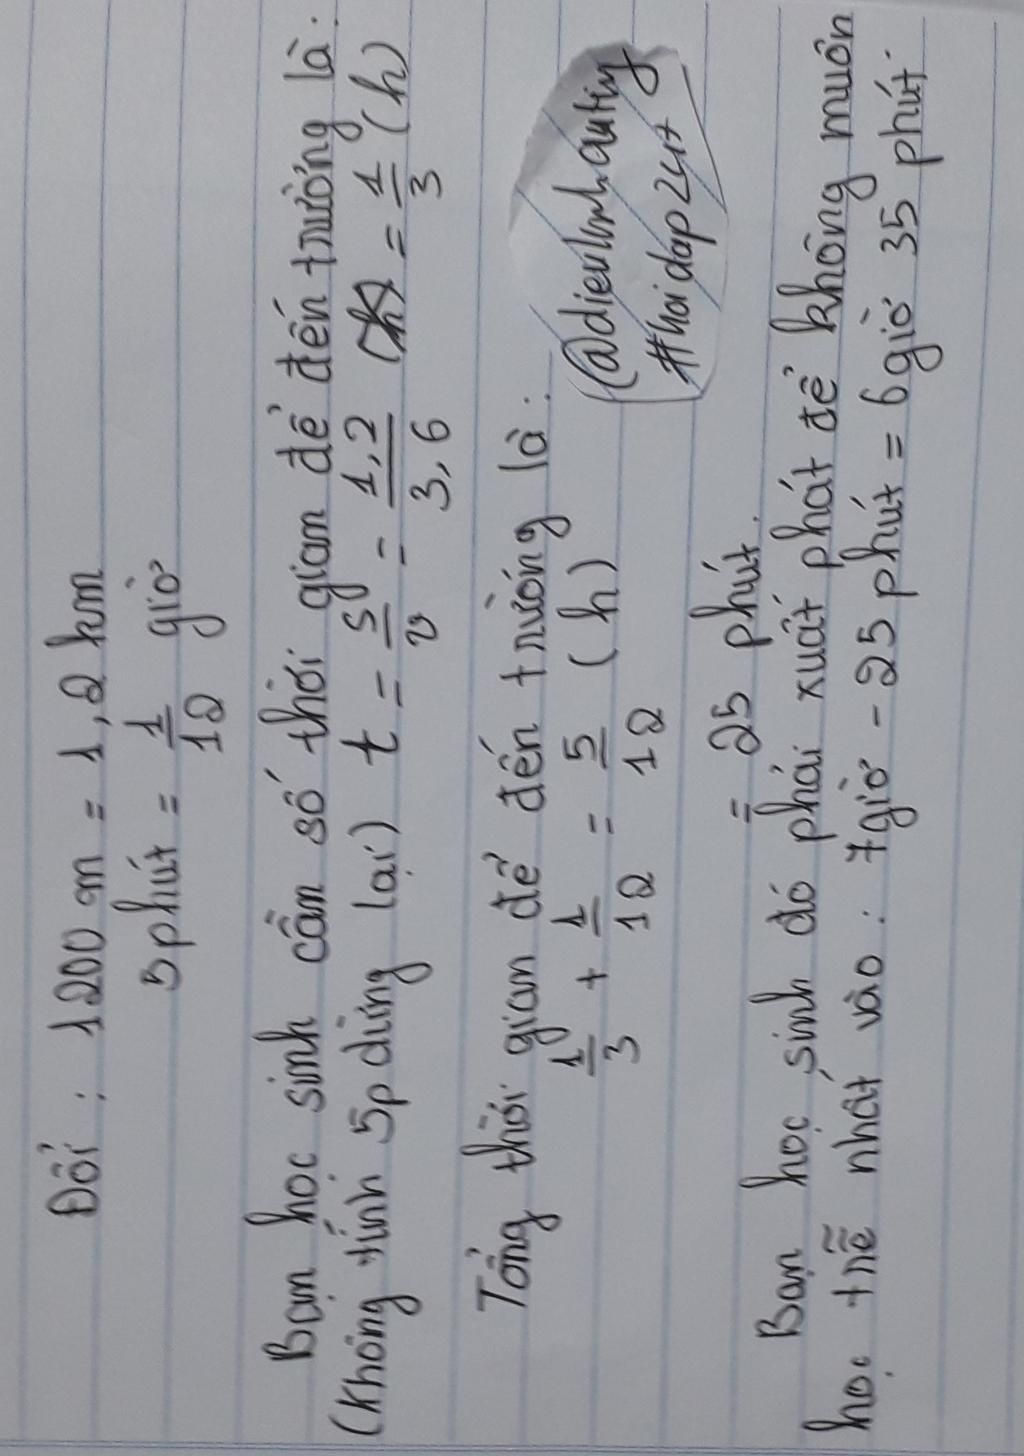 Đổi : 1200 m = 1,2 km
5 phút = 1/12 giờ
Bạn học sinh cần số thời gian để đến trường là:
(Không tính 5p dừng lại) t = s/v = 1,2/3,6 = 1/3 (h)
Tổng thời gian để đến trường là:
1/3 + 1/12 = 5/12 (h)
@dieulinhauhy
#hoidap247
= 25 phút.
Bạn học sinh đó phải xuất phát để không muộn
học trễ nhất vào : 7giờ - 25 phút = 6giờ 35 phút.